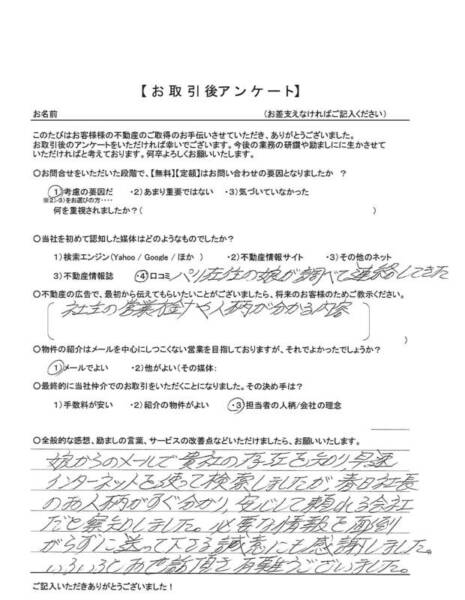 【お取引後アンケート】
お名前 (お差支えなければご記入ください)
このたびはお客様様の不動産のご取得のお手伝いさせていただき、ありがとうございました。
お取引後のアンケートをいただければ幸いでございます。今後の業務の研鑽や励ましにに生かさせて
いただければと考えております。何卒よろしくお願いいたします。
○お問合せをいただいた段階で、【無料】【定額】はお問い合わせの要因となりましたか ?
1)考慮の要因だ ・2)あまり重要ではない ・3)気づいていなかった
※2)・3)をお選びの方・・・・
何を重視されましたか?( )
○当社を初めて認知した媒体はどのようなものでしたか?
1)検索エンジン(Yahoo / Google / ほか ) ・2)不動産情報サイト ・3)その他のネット
3)不動産情報誌 ・4)口コミ パリ在住の娘が調べて連絡してきた
○不動産の広告で、最初から伝えてもらいたいことがございましたら、将来のお客様のためご教示ください。
社主の営業検討や人柄が分かる内容
○物件の紹介はメールを中心にしつこくない営業を目指しておりますが、それでよかったでしょうか?
1)メールでよい ・2)他がよい(その媒体: )
○最終的に当社仲介でのお取引をいただくことになりました。その決め手は?
1)手数料が安い ・2)紹介の物件がよい ・3)担当者の人柄/会社の理念
○全般的な感想、励ましの言葉、サービスの改善点などいただけましたら、お願いいたします。
娘からのメールで貴社の存在を知り、早速
インターネットを使って検索しましたが、春日社長
のお人柄がすぐ分かり、安心して頼れる会社
だと察知しました。必要な情報を面倒
がらずに送って下さる誠意にも感謝しました。
いろいろとお世話頂き有難うございました。
ご記入いただきありがとうございました!